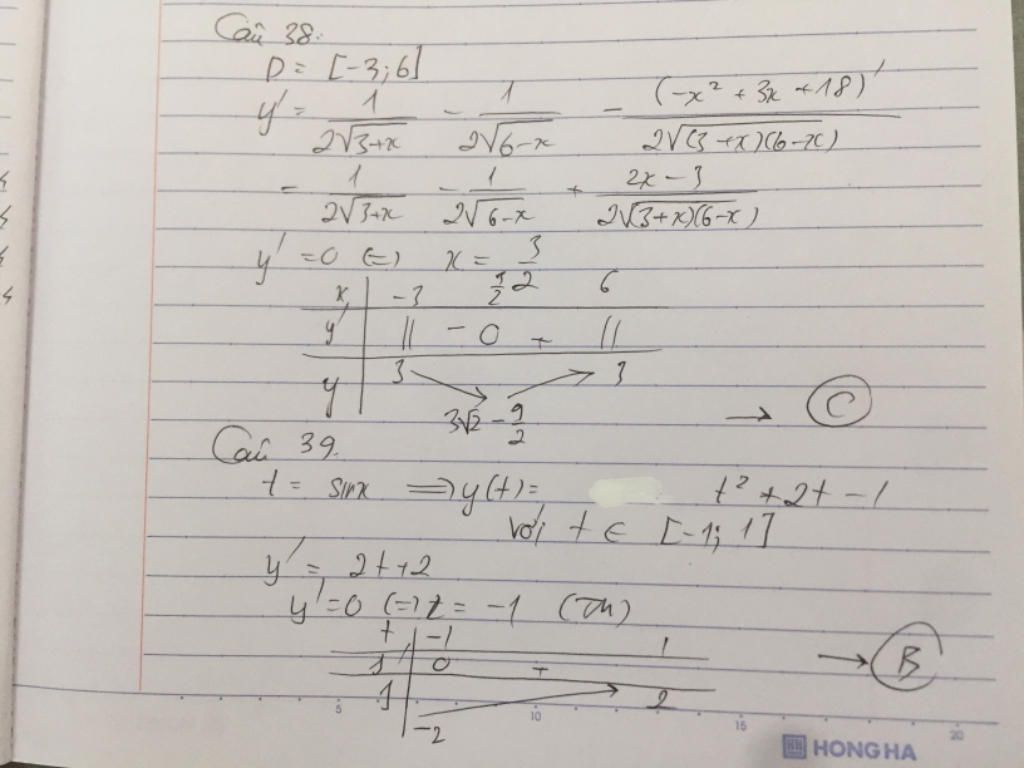 Câu 38:
D = [-3; 6]
y' = 1/(2√(3+x)) - 1/(2√(6-x)) - (-x² + 3x + 18)'/(2√((3+x)(6-x)))
= 1/(2√(3+x)) - 1/(2√(6-x)) + (2x-3)/(2√((3+x)(6-x)))
y' = 0 (=) x = 3/2
x -3 3/2 6
y' || - 0 + ||
y 3 3
3√2 - 9/2 → C
Câu 39.
t = sinx => y(t) = t² + 2t - 1
với t ∈ [-1; 1]
y' = 2t+2
y' = 0 (=) t = -1 (TM)
t -1 1
y' 0 + → B
y 2
-2
5 10 15 20
HONG HA